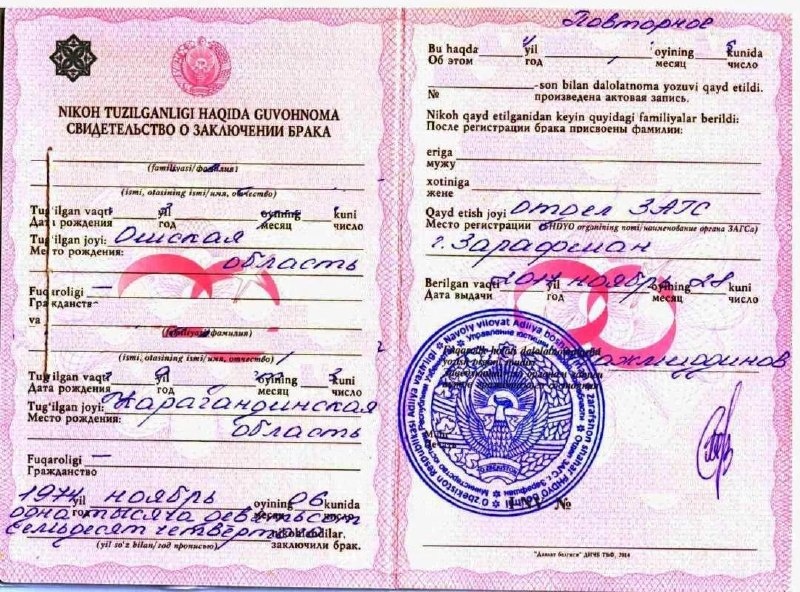 NIKOH TUZILGANLIGI HAQIDA GUVOHNOMA
СВИДЕТЕЛЬСТВО О ЗАКЛЮЧЕНИИ БРАКА
(familiyasi/фамилия)
(ismi, otasining ismi/имя, отчество)
Tug'ilgan vaqti yil oyining kuni
Дата рождения год месяц число
Tug'ilgan joyi: Омская
Место рождения: область
Fuqaroligi —
Гражданство
va
(familiyasi/фамилия)
(ismi, otasining ismi/имя, отчество)
Tug'ilgan vaqti yil kuni
Дата рождения год месяц число
Tug'ilgan joyi: Карагандинская
Место рождения: область
Fuqaroligi —
Гражданство
1974 yil ноябрь oyining 06 kunida
год одна тысяча девятьсот месяц число
семьдесят четвёртого nikohlandilar.
(yil so'z bilan/год прописью) заключили брак.
Повторное
Bu haqda yil oyining kunida
Об этом год месяц число
№ -son bilan dalolatnoma yozuvi qayd etildi.
произведена актовая запись.
Nikoh qayd etilganidan keyin quyidagi familiyalar berildi:
После регистрации брака присвоены фамилии:
eriga
мужу
xotiniga
жене
Qayd etish joyi отдел ЗАГС
Место регистрации (FHDYO organining nomi/наименование органа ЗАГСа)
г. Зарафшан
Berilgan vaqti 2017 yil ноябрь oyining 28 kuni
Дата выдачи год месяц число
№
"Давлат белгиси" ДИЧБ ТЬФ, 2014